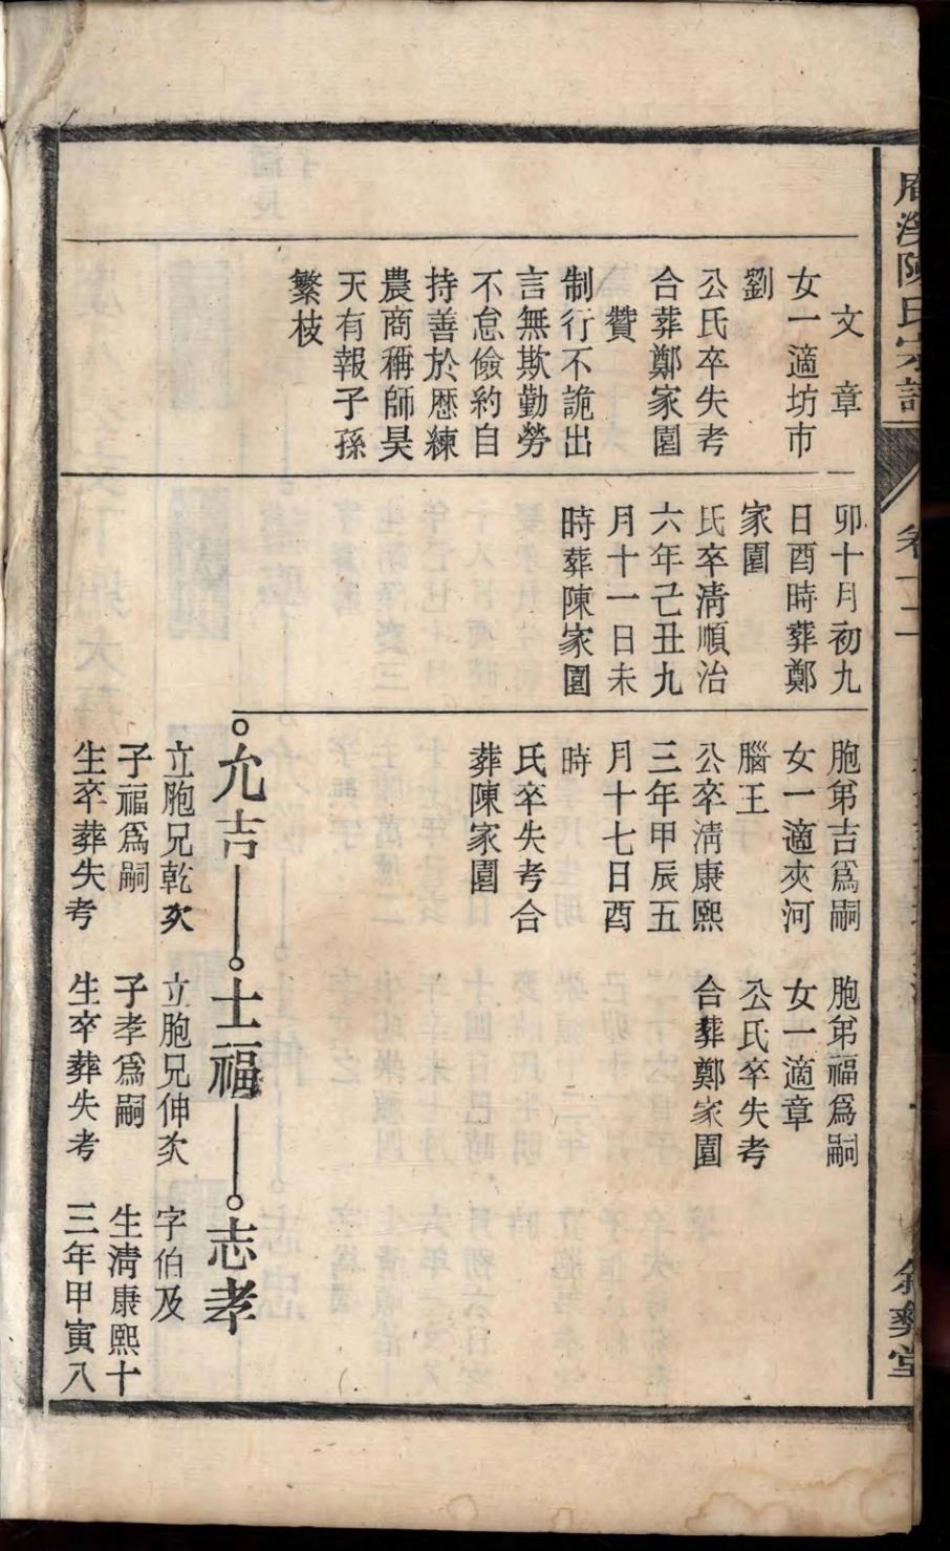 溪陳氏宗譜
卷十二
敘彝堂
文章
女一適坊市
劉
公氏卒失考
合葬鄭家園
贊
制行不詭出
言無欺勤勞
不怠儉約自
持善於歷練
農商稱師昊
天有報子孫
繁枝
卯十月初九
日酉時葬鄭
家園
氏卒淸順治
六年己丑九
月十一日未
時葬陳家園
胞弟吉爲嗣
女一適夾河
腦王
公卒淸康熙
三年甲辰五
月十七日酉
時
氏卒失考合
葬陳家園
胞弟福爲嗣
女一適章
公氏卒失考
合葬鄭家園
允吉
立胞兄乾次
子福爲嗣
生卒葬失考
士福
立胞兄伸次
子孝爲嗣
生卒葬失考
志孝
字伯及
生淸康熙十
三年甲寅八